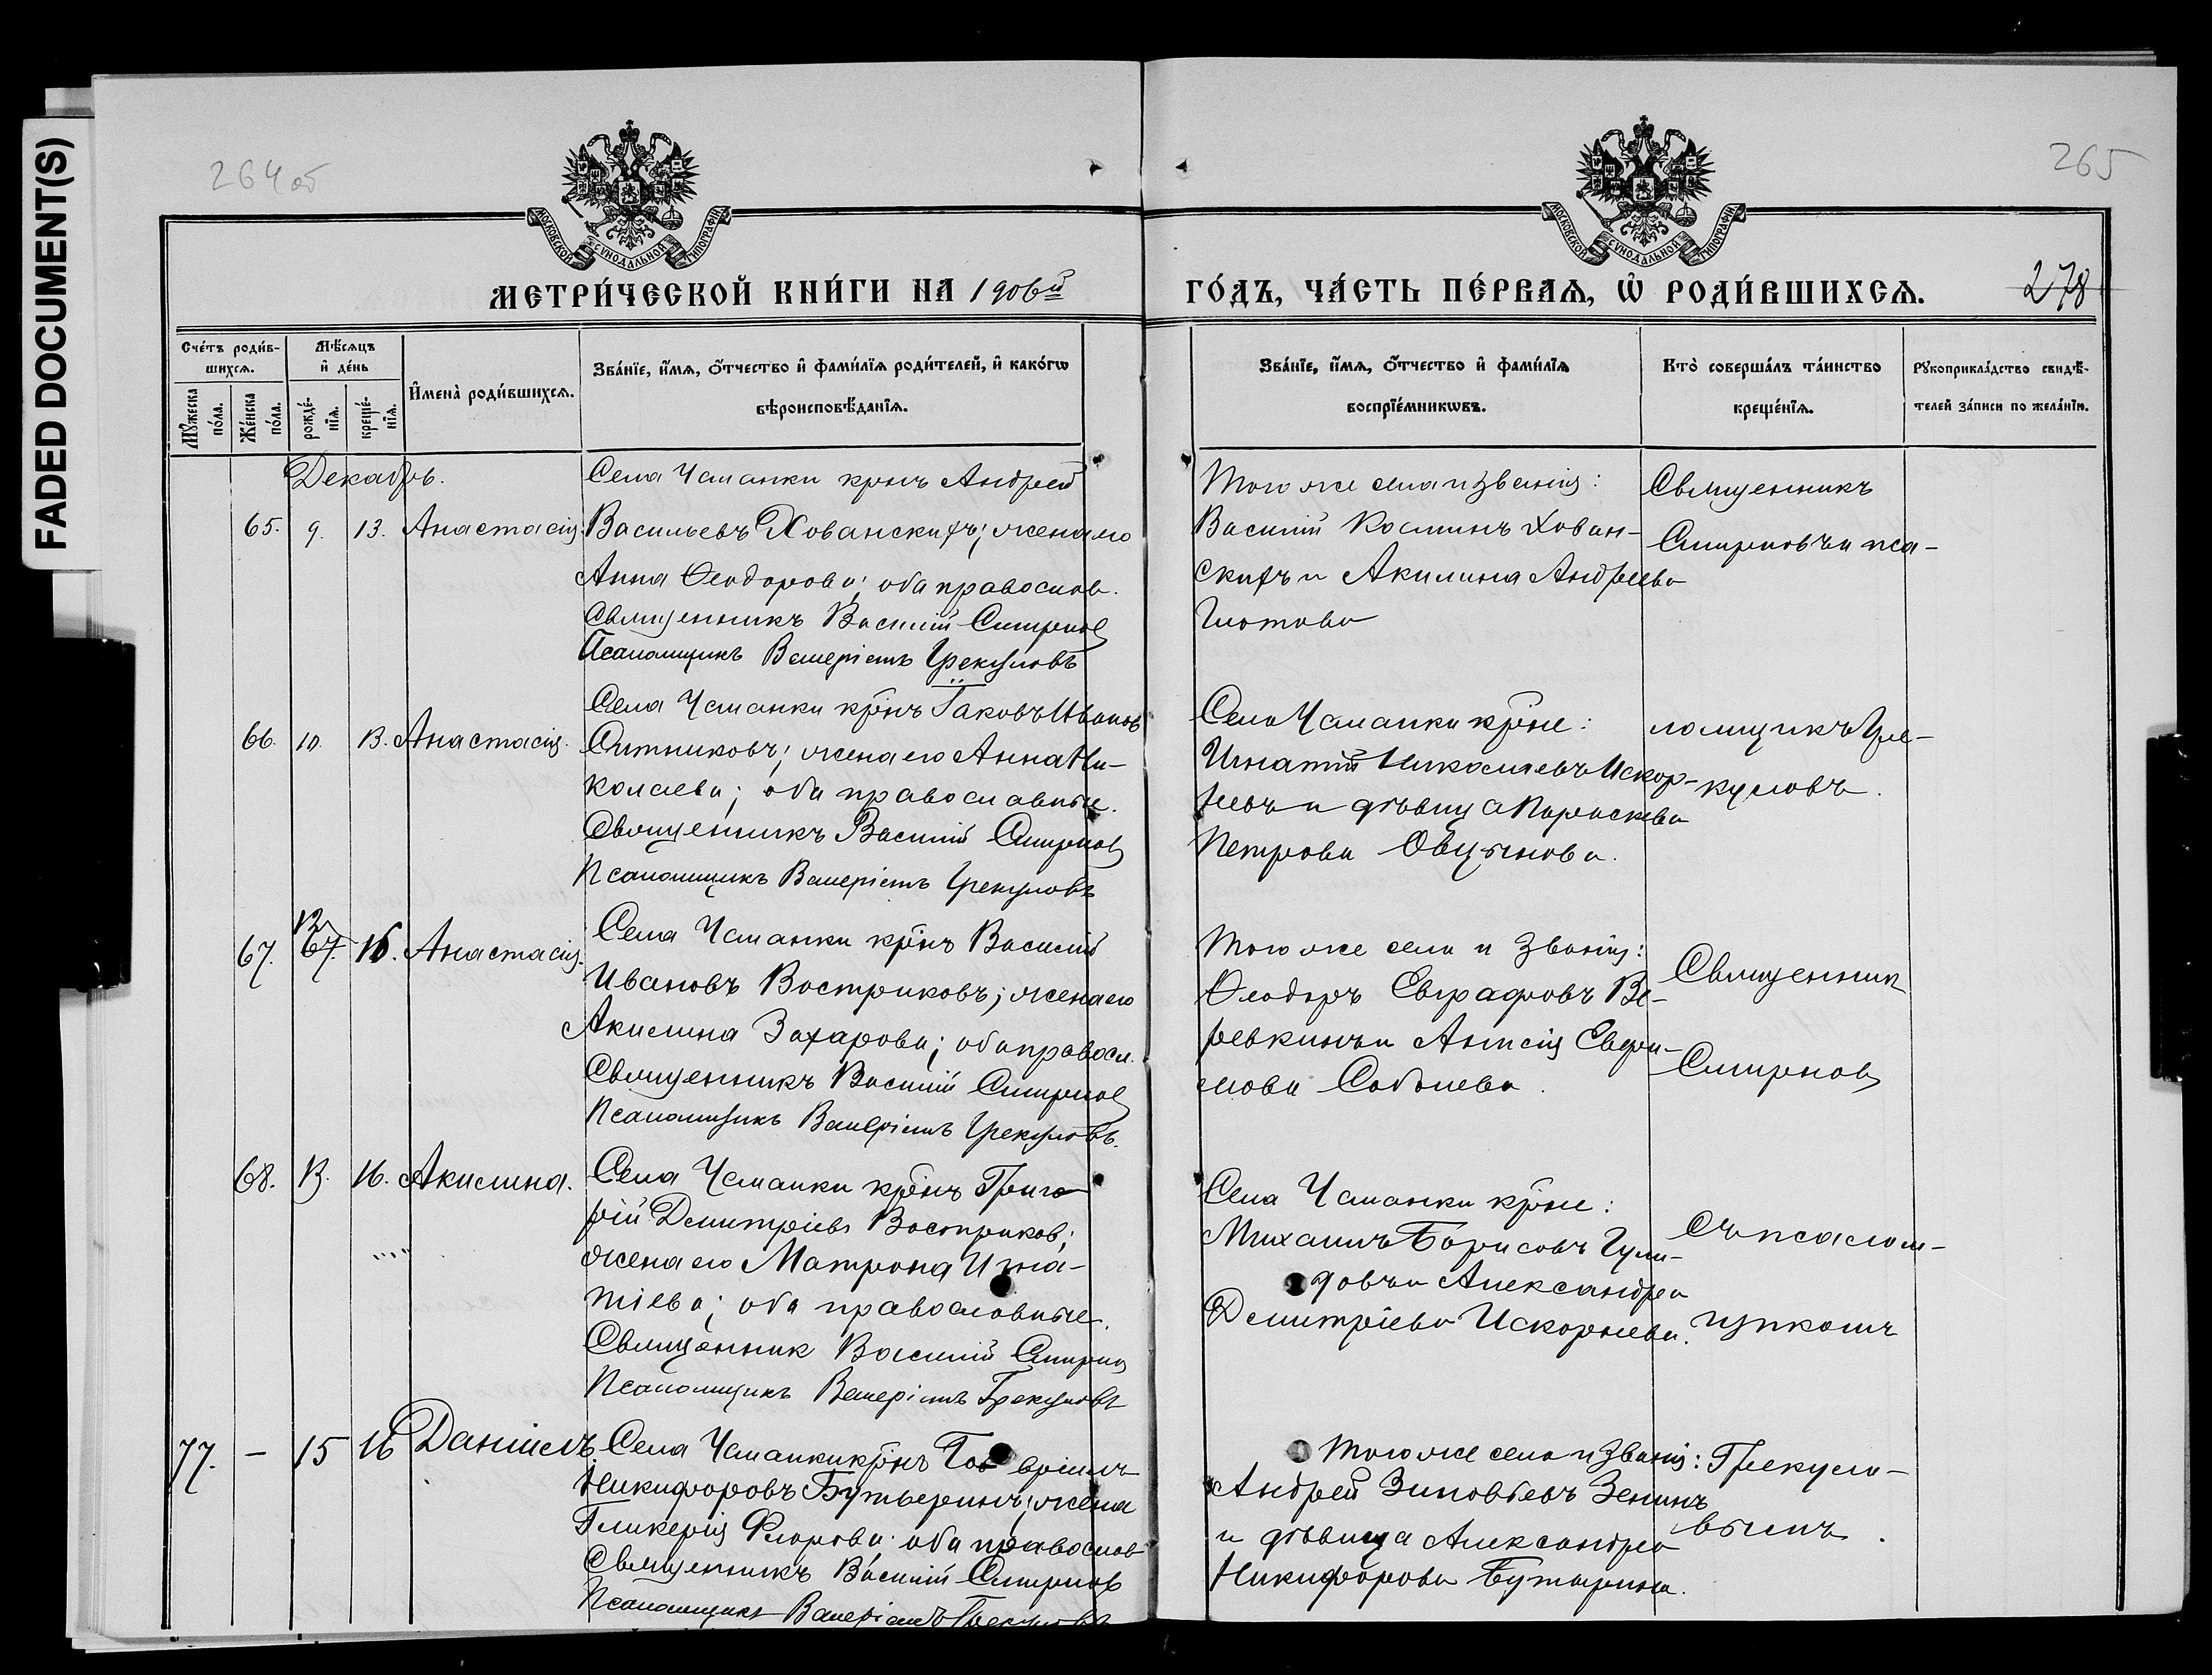 FADED DOCUMENT(S)
264об
265
МОСКОВСКОЙ СУНОДАЛЬНОЙ ТИПОГРАФІИ
МОСКОВСКОЙ СУНОДАЛЬНОЙ ТИПОГРАФІИ
МЕТРИ́ЧЕСКОЙ КНИ́ГИ НА 1906й
ГО́ДЪ, ЧА́СТЬ ПЕ́РВАѦ, Ѡ҆ РОДИ́ВШИХСѦ.
278
Сче́тъ роди́в-
шихсѧ.
Мѣ́сяцъ
и҆ де́нь
Му́жеска
по́ла.
Же́нска
по́ла.
рожде́-
нїѧ.
креще́-
нїѧ.
И҆мена̀ роди́вшихсѧ.
Зва́нїе, и҆́мѧ, ѻ҆́тчество и҆ фами́лїѧ роди́телей, и҆ како́гѡ
вѣроисповѣ́данїѧ.
Зва́нїе, и҆́мѧ, ѻ҆́тчество и҆ фами́лїѧ
воспрїе́мникѡвъ.
Кто̀ соверша́лъ та́инство
креще́нїѧ.
Рꙋкоприкла́дство свидѣ́-
телей за́писи по жела́нїю.
Декабрь.
65. 9. 13. Анастасія.
Села Чаманки крнъ Андрей
Васильевъ Хованскихъ; жена его
Анна Ѳеодорова; оба православ.
Священникъ Василій Смирнов
Псаломщикъ Валеріанъ Грекуловъ
Того же села и званія:
Василій Косминъ Хован-
скихъ и Акилина Андреева
Глотова
Священникъ
Смирновъ и пса-
66. 10. 13. Анастасія.
Села Чаманки крнъ Іаковъ Иванов
Ситниковъ; жена его Анна Ни-
колаева; оба православные.
Священникъ Василій Смирнов
Псаломщикъ Валеріанъ Грекуловъ
Села Чаманки крне:
Игнатій Николаевъ Искор-
невъ и дѣвица Параскева
Петрова Овцынова.
ломщикъ Гре-
куловъ.
67. 67. 12 16. Анастасія.
Села Чаманки крнъ Василій
Ивановъ Востриковъ; жена его
Акилина Захарова; оба правосл.
Священникъ Василій Смирнов
Псаломщикъ Валеріанъ Грекуловъ.
Того же села и званія:
Ѳеодоръ Евграфовъ Ве-
ревкинъ и Анисія Ефри-
мова Соболева.
Священник
Смирнов
68. 13. 16. Акилина.
Села Чаманки крнъ Григо
рій Димитріевъ Востриков;
жена его Матрона Игна-
тіева; оба православные.
Священник Василій Смирнов
Псаломщикъ Валеріанъ Грекуловъ
Села Чаманки крне:
Михаилъ Борисовъ Гули-
довъ и Александра
Димитріева Искорнева.
съ псалом-
щикомъ
77. — 15 16 Даніилъ
Села Чаманки крнъ Гавріилъ
Никифоровъ Бутыринъ; жена
Гликерія Флорова оба православ
Священникъ Василій Смирнов
Псаломщикъ Валеріанъ Грекуловъ
Того же села и званія:
Андрей Зиновьевъ Зенинъ
и дѣвица Александра
Никифорова Бутырина.
Грекуло-
вымъ.